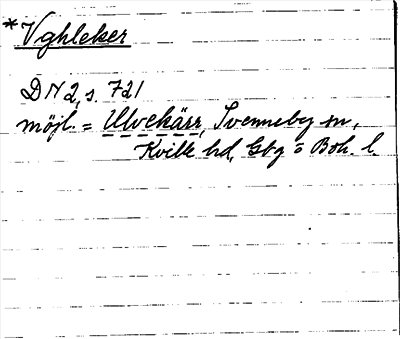 *Vghleker
DN 2, s. 721
möjl. = Ulvekärr, Svenneby sn,
Kville hd, Gbg o Boh. l.